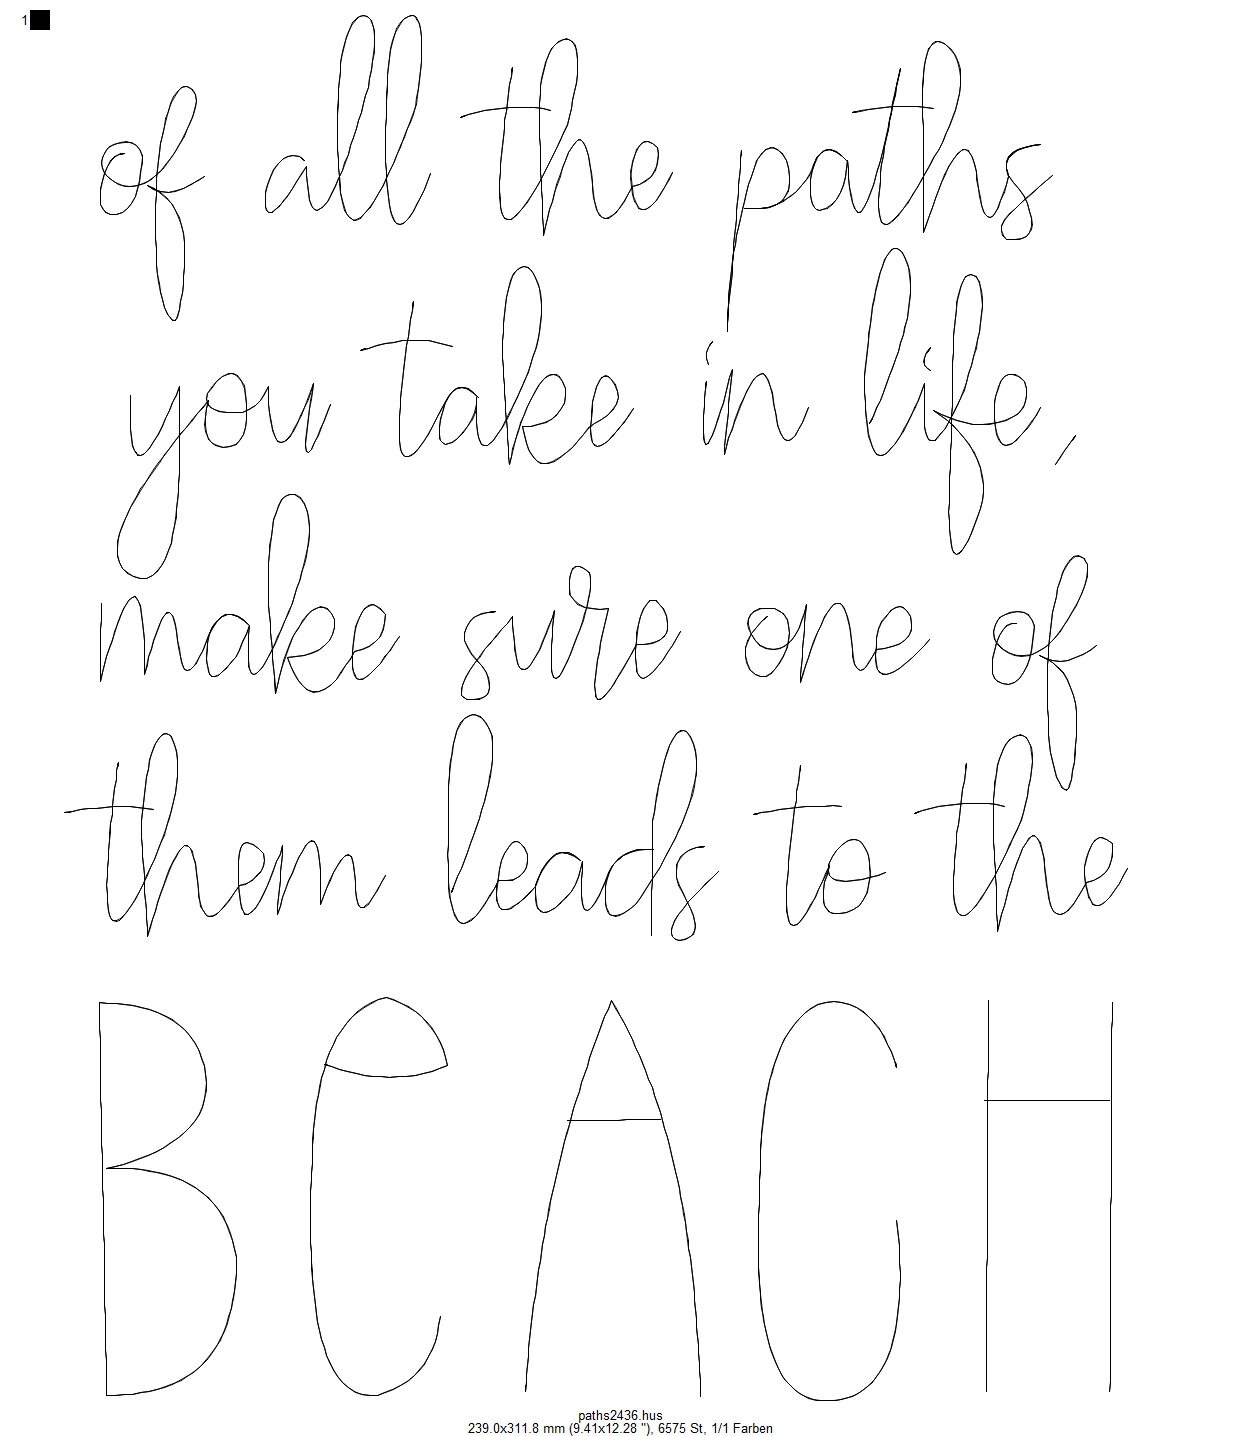 1
of all the paths
you take in life,
make sure one of
them leads to the
BEACH
paths2436.hus
239.0x311.8 mm (9.41x12.28 "), 6575 St, 1/1 Farben